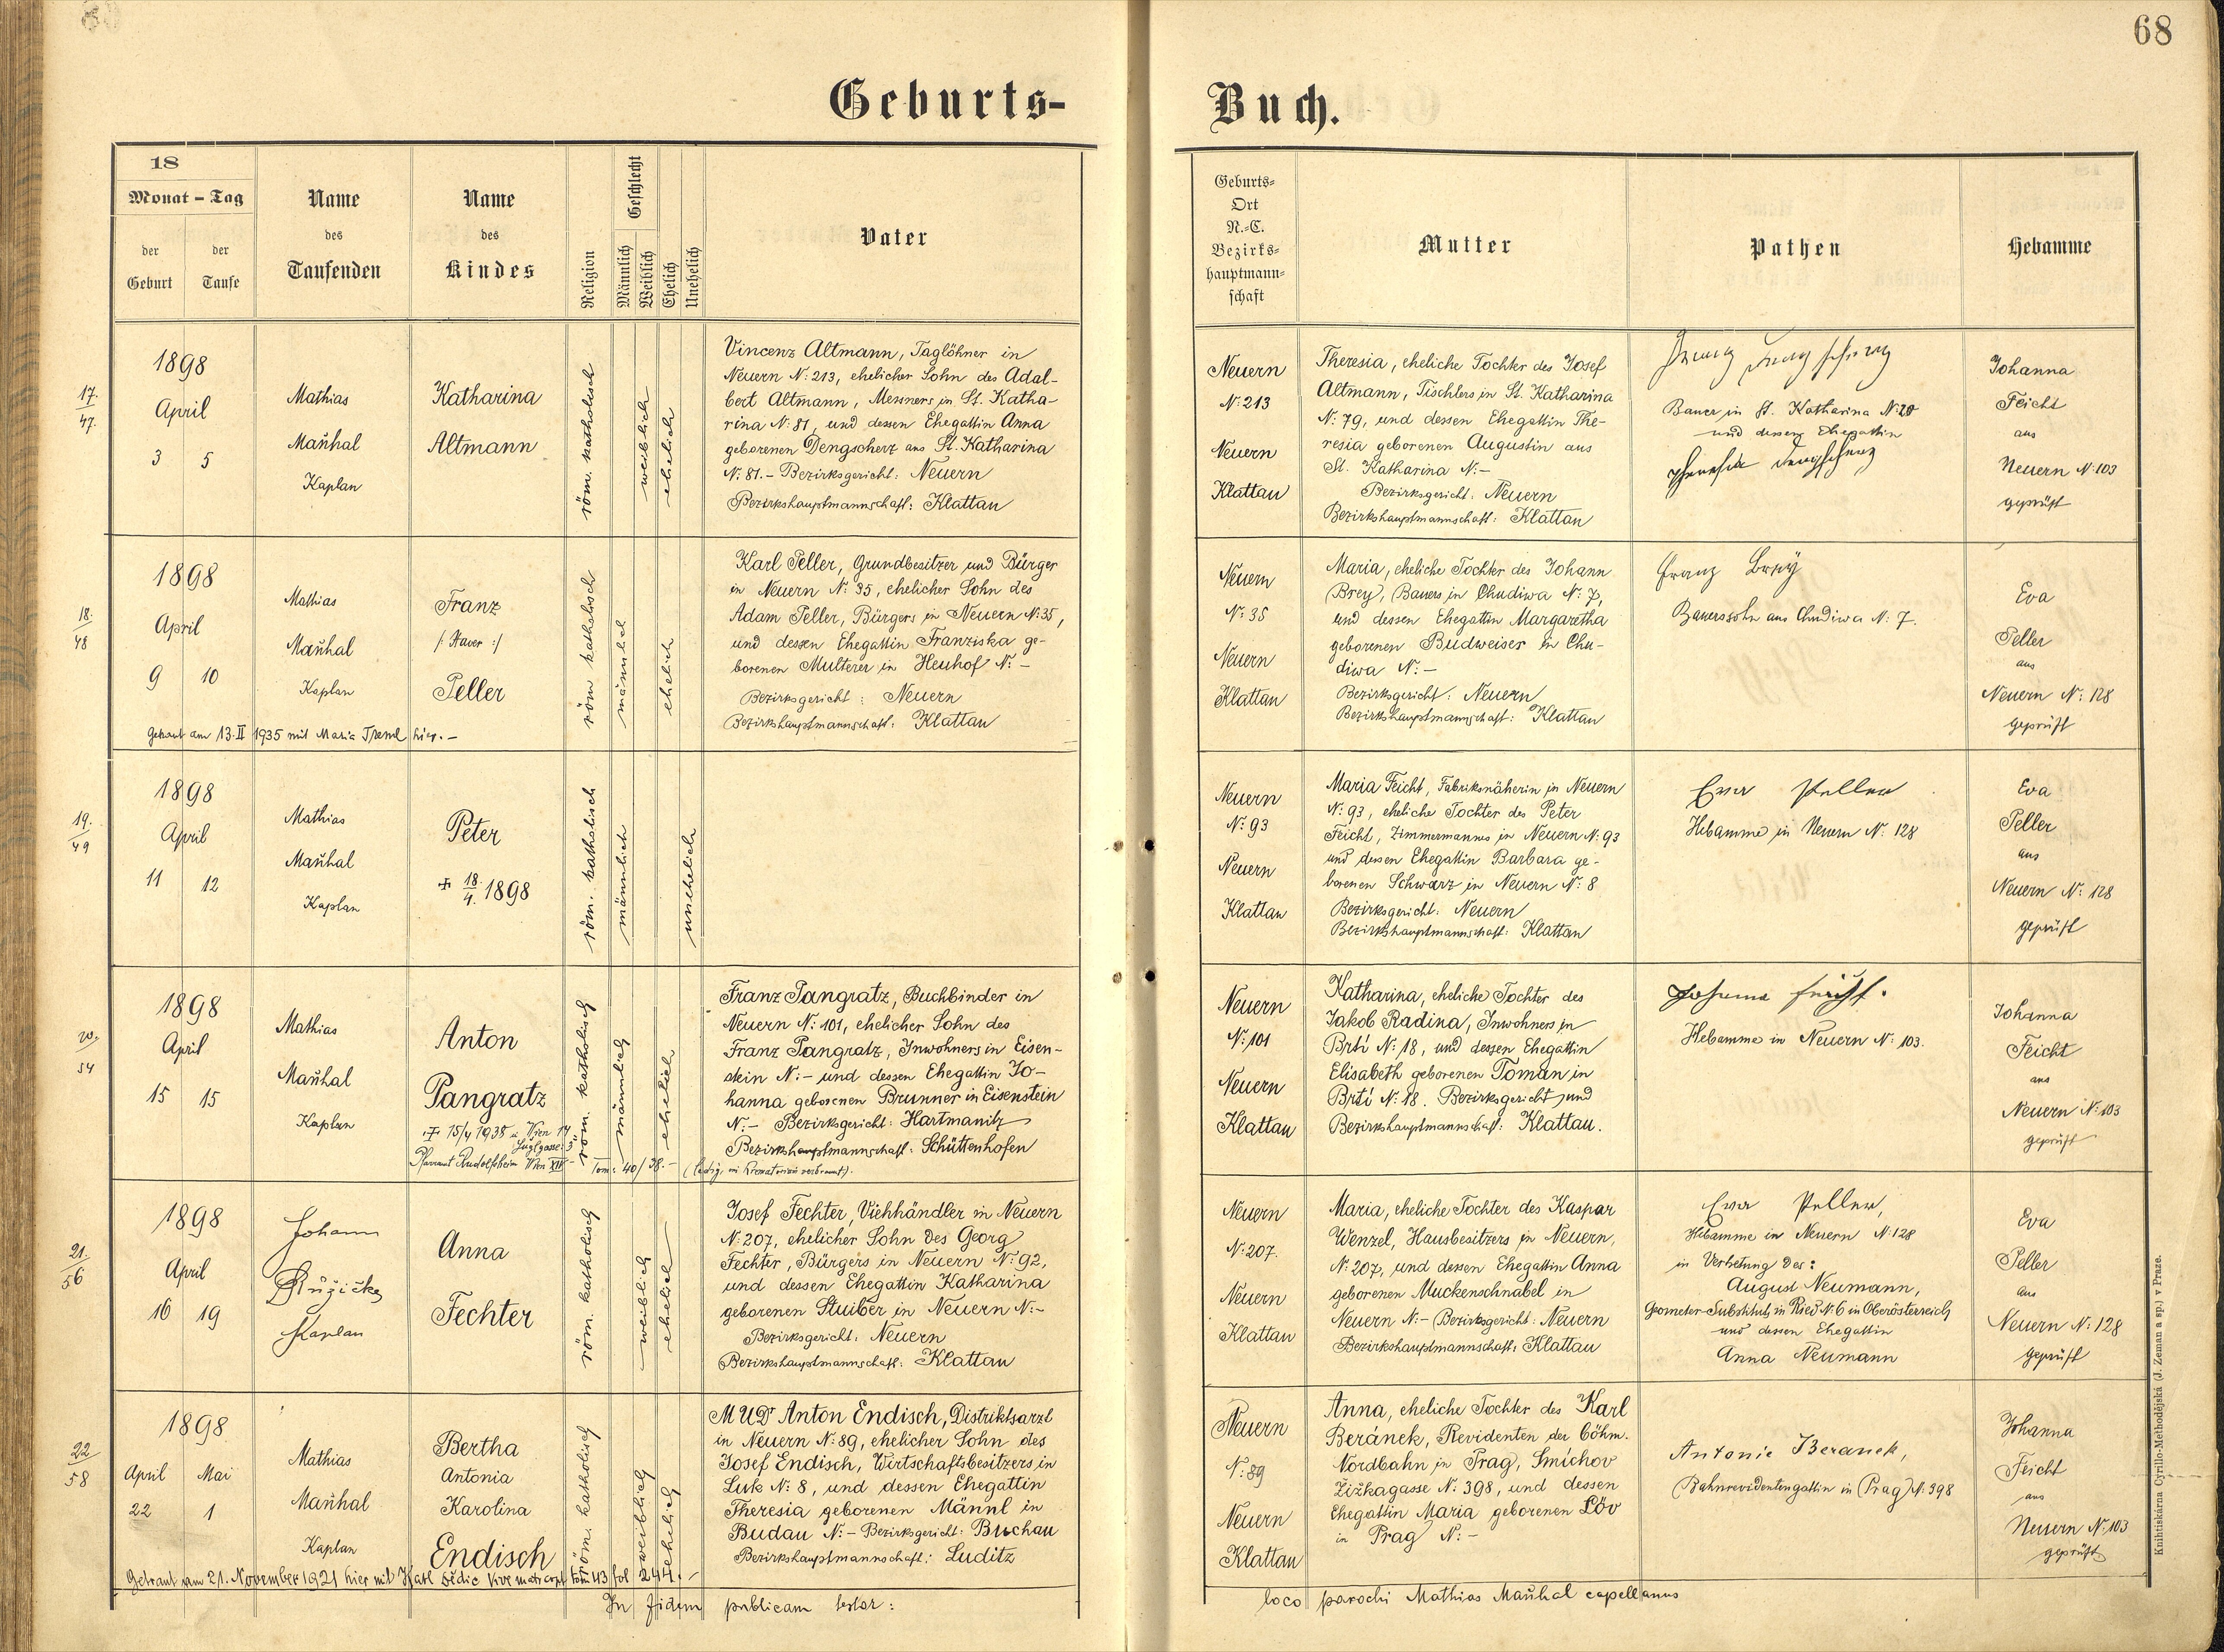 68
Geburts-
Buch.
18
Monat - Tag
der Geburt
der Taufe
Name des Taufenden
Name des Kindes
Religion
Geschlecht
Männlich
Weiblich
Ehelich
Unehelich
Vater
Geburts-
Ort
N.-C.
Bezirks-
hauptmann-
schaft
Mutter
Pathen
Hebamme
17.
47.
1898
April
3 5
Mathias
Mañhal
Kaplan
Katharina
Altmann
röm. katholisch
weiblich
ehelich
Vincenz Altmann, Taglöhner in
Neuern N: 213, ehelicher Sohn des Adal-
bert Altmann, Messners in St. Katha-
rina N: 81, und dessen Ehegattin Anna
geborenen Dengscherz aus St. Katharina
N: 81. - Bezirksgericht: Neuern
Bezirkshauptmannschaft: Klattau
Neuern
N: 213
Neuern
Klattau
Theresia, eheliche Tochter des Josef
Altmann, Tischlers in St. Katharina
N: 79, und dessen Ehegattin The-
resia geborenen Augustin aus
St. Katharina N: -
Bezirksgericht: Neuern
Bezirkshauptmannschaft: Klattau
Bauer in St. Katharina N: 20
und dessen Ehegattin
Johanna
Feicht
aus
Neuern N: 103
geprüft
18.
48
1898
April
9 10
Mathias
Mañhal
Kaplan
Franz
Peller
röm katholisch
männlich
ehelich
Karl Peller, Grundbesitzer und Bürger
in Neuern N: 35, ehelicher Sohn des
Adam Peller, Bürgers in Neuern N: 35,
und dessen Ehegattin Franziska ge-
borenen Multerer in Heuhof N: -
Bezirksgericht: Neuern
Bezirkshauptmannschaft: Klattau
Getraut am 13. II 1935 mit Maria Treml hier. -
Neuern
N: 35
Neuern
Klattau
Maria, eheliche Tochter des Johann
Brey, Bauers in Chudiwa N: 7,
und dessen Ehegattin Margaretha
geborenen Budweiser in Chu-
diwa N: -
Bezirksgericht: Neuern
Bezirkshauptmannschaft: Klattau
Franz Brey
Bauerssohn aus Chudiwa N: 7.
Eva
Peller
aus
Neuern N: 128
geprüft
19.
49
1898
April
11 12
Mathias
Mañhal
Kaplan
Peter
✠ 18./4. 1898
röm. katholisch
männlich
unehelich
Neuern
N: 93
Neuern
Klattau
Maria Feicht, Fabriksnäherin in Neuern
N: 93, eheliche Tochter des Peter
Feicht, Zimmermannes in Neuern N: 93
und dessen Ehegattin Barbara ge-
borenen Schwarz in Neuern N: 8
Bezirksgericht: Neuern
Bezirkshauptmannschaft: Klattau
Eva Peller
Hebamme in Neuern N: 128
Eva
Peller
aus
Neuern N: 128
geprüft
20.
54
1898
April
15 15
Mathias
Mañhal
Kaplan
Anton
Pangratz
röm. katholisch
männlich
ehelich
Franz Pangratz, Buchbinder in
Neuern N: 101, ehelicher Sohn des
Franz Pangratz, Inwohners in Eisen-
stein N: - und dessen Ehegattin Jo-
hanna geborenen Brunner in Eisenstein
N: - Bezirksgericht: Hartmanitz
Bezirkshauptmannschaft: Schüttenhofen
Pfarramt Rudolfsheim Wien XIV
Neuern
N: 101
Neuern
Klattau
Katharina, eheliche Tochter des
Jakob Radina, Inwohners in
Brtí N: 18, und dessen Ehegattin
Elisabeth geborenen Toman in
Brtí N: 18. Bezirksgericht und
Bezirkshauptmannschaft: Klattau.
Johanna Feicht.
Hebamme in Neuern N: 103.
Johanna
Feicht
aus
Neuern N: 103
geprüft
21.
56
1898
April
16 19
Johann
Růžička
Kaplan
Anna
Fechter
röm. katholisch
weiblich
ehelich
Josef Fechter, Viehhändler in Neuern
N: 207, ehelicher Sohn des Georg
Fechter, Bürgers in Neuern N: 92,
und dessen Ehegattin Katharina
geborenen Stuiber in Neuern N: -
Bezirksgericht: Neuern
Bezirkshauptmannschaft: Klattau
Neuern
N: 207.
Neuern
Klattau
Maria, eheliche Tochter des Kaspar
Wenzel, Hausbesitzers in Neuern,
N: 207, und dessen Ehegattin Anna
geborenen Muckenschnabel in
Neuern N: - Bezirksgericht: Neuern
Bezirkshauptmannschaft: Klattau
Eva Peller,
Hebamme in Neuern N: 128
in Vertretung des:
August Neumann,
Geometer-Substituts in Ried N: 6 in Oberösterreich
und dessen Ehegattin
Anna Neumann
Eva
Peller
aus
Neuern N: 128
geprüft
22
58
1898
April Mai
22 1
Mathias
Mañhal
Kaplan
Bertha
Antonia
Karolina
Endisch
röm. katholisch
weiblich
ehelich
MUDr Anton Endisch, Distriktsarzt
in Neuern N: 89, ehelicher Sohn des
Josef Endisch, Wirtschaftsbesitzers in
Luk N: 8, und dessen Ehegattin
Theresia geborenen Männl in
Budau N: - Bezirksgericht: Buchau
Bezirkshauptmannschaft: Luditz
Getraut am 21. November 1921 hier mit Karl
Neuern
N: 89
Neuern
Klattau
Anna, eheliche Tochter des Karl
Beránek, Revidenten der böhm.
Nordbahn in Prag, Smíchov
Žižkagasse N: 398, und dessen
Ehegattin Maria geborenen Löv
in Prag N: -
Antonie Beranek,
Bahnrevidentengattin in Prag N: 398
Johanna
Feicht
aus
Neuern N: 103
geprüft
In fidem publicam testor:
loco parochi Mathias Mañhal capellanus
Knihtiskárna Cyrillo-Methodějská (J. Zeman a sp.) v Praze.